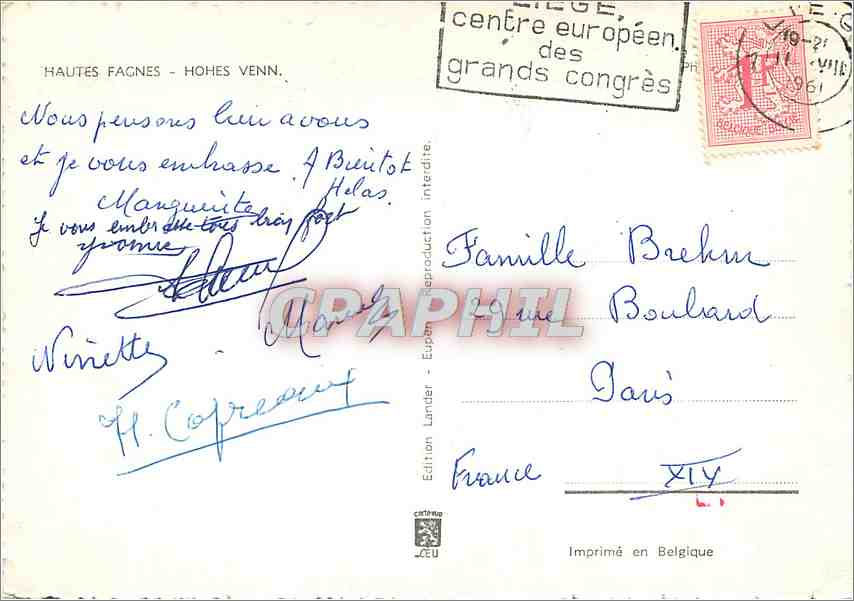 LIEGE,
centre européen
des
grands congrès
19-2
1961
1F
BELGIQUE-BELGIE
HAUTES FAGNES - HOHES VENN.
Nous pensons bien a vous
et je vous embrasse. A Bientot
Helas.
Marguerite
Je vous embrasse tous bien fort
Yvonne
Ninette - Marcel
H.
CPAPHIL
Edition Lander - Eupen Reproduction interdite.
Famille Brehm
29 rue Boulard
Paris
France XIV
CEU
Imprimé en Belgique